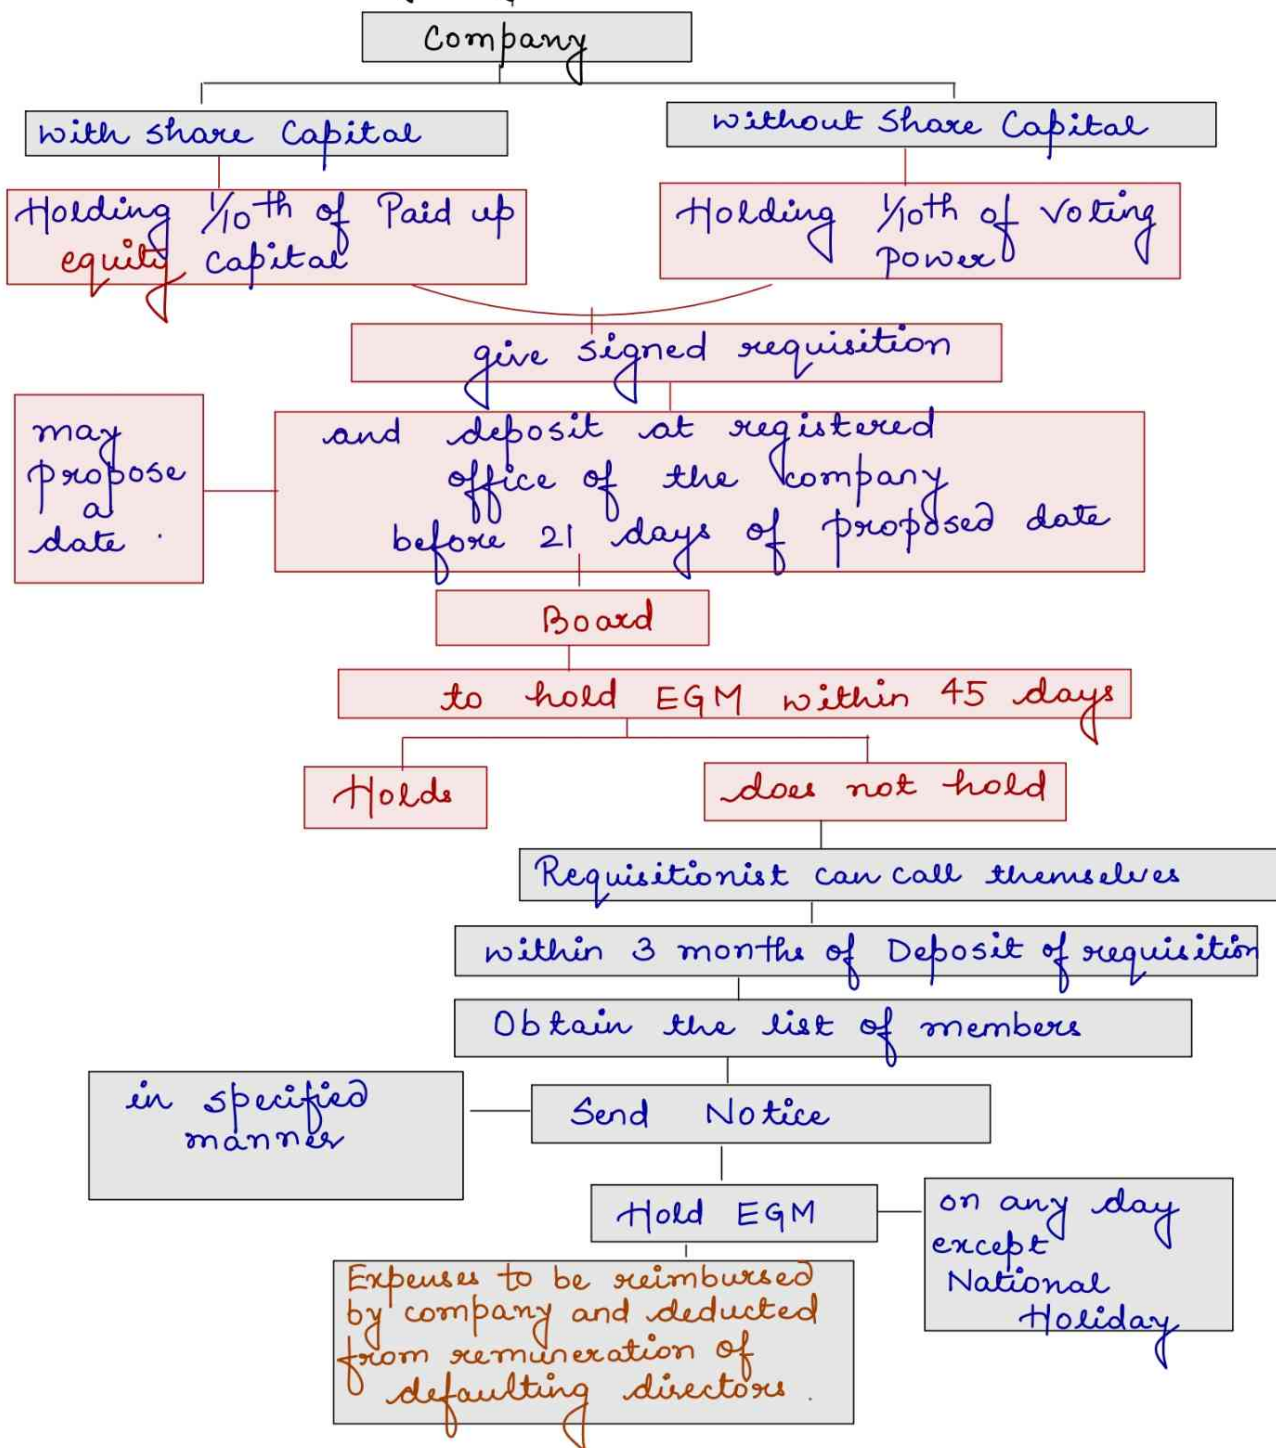 Company
with share Capital
without Share Capital
Holding 1/10th of Paid up
equity capital
Holding 1/10th of Voting
power
give signed requisition
may
propose
a
date.
and deposit at registered
office of the company
before 21 days of proposed date
Board
to hold EGM within 45 days
Holds
does not hold
Requisitionist can call themselves
within 3 months of Deposit of requisition
Obtain the list of members
in specified
manner
Send Notice
Hold EGM
on any day
except
National
Holiday
Expenses to be reimbursed
by company and deducted
from remuneration of
defaulting directors.